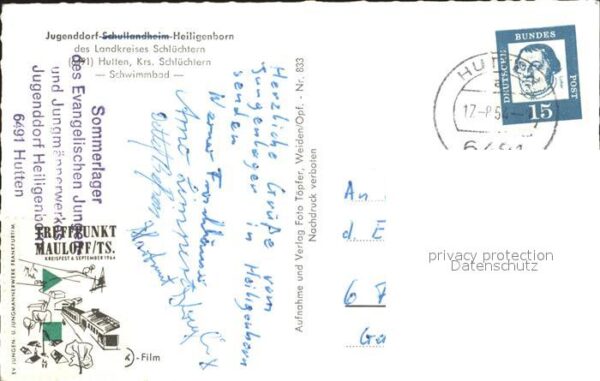 Jugenddorf-Schullandheim-Heiligenborn
des Landkreises Schlüchtern
Hutten, Krs. Schlüchtern
— Schwimmbad —
Sommerlager
des Evangelischen Jungen-
und Jungmännerwerkes
Jugenddorf Heiligenborn
6491 Hutten
TREFFPUNKT
MAULOFF/TS.
KREISFEST 6 SEPTEMBER 1964
Herzliche Grüße vom
Jungenlager in Heiligenborn
senden
Aufnahme und Verlag Foto Töpfer, Weiden/Opf. - Nr. 833
Nachdruck verboten
-Film
DEUTSCHE BUNDES POST
15
17.-8.64
An
d E
6 F
privacy protection
Datenschutz